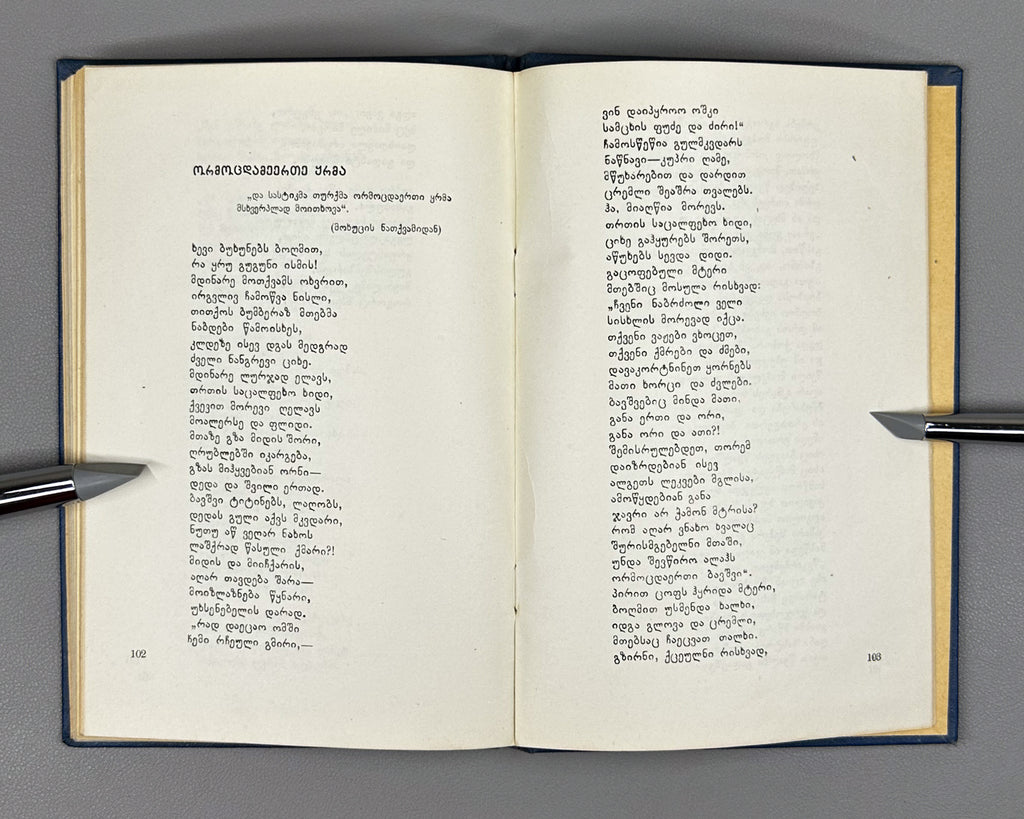 ორმოცდამეერთე ყრმა
„და სასტიკმა თურქმა ორმოცდაერთი ყრმა
მსხვერპლად მოითხოვა“.
(მოხუცის ნათქვამიდან)
ხევი ბუხუნებს ბოღმით,
რა ყრუ გუგუნი ისმის!
მდინარე მოთქვამს ოხვრით,
ირგვლივ ჩამოწვა ნისლი,
თითქოს ბუმბერაზ მთებმა
ნაბდები წამოისხეს,
კლდეზე ისევ დგას მედგრად
ძველი ნანგრევი ციხე.
მდინარე ლურჯად ელავს,
თრთის საცალფეხო ხიდი,
ქვევით მორევი ღელავს
მოალერსე და ფლიდი.
მთაზე გზა მიდის შორი,
ღრუბლებში იკარგება,
გზას მიჰყვებიან ორნი—
დედა და შვილი ერთად.
ბავშვი ტიტინებს, ლაღობს,
დედას გული აქვს მკვდარი,
ნუთუ აწ ვეღარ ნახოს
ლაშქრად წასული ქმარი?!
მიდის და მიიჩქარის,
აღარ თავდება შარა—
მოიზლაზნება წყნარი,
უხსენებელის დარად.
„რად დაეცაო ომში
ჩემი რჩეული გმირი,—
102
ვინ დაიპყროო ოშკი
სამცხის ფუძე და ძირი!“
ჩამოსწეწია გულმკვდარს
ნაწნავი—კუპრი ღამე,
მწუხარებით და დარდით
ცრემლი შეაშრა თვალებს.
ჰა, მიაღწია მორევს.
თრთის საცალფეხო ხიდი,
ციხე გაჰყურებს შორეთს,
აწუხებს სევდა დიდი.
გაცოფებული მტერი
მთებშიც მოსულა რისხვად:
„ჩვენი ნაბრძოლი ველი
სისხლის მორევად იქცა.
თქვენი ვაჟები ვხოცეთ,
თქვენი ქმრები და ძმები,
დავაკორტნინეთ ყორნებს
მათი ხორცი და ძვლები.
ბავშვებიც მინდა მათი,
განა ერთი და ორი,
განა ორი და ათი?!
შემისრულებდეთ, თორემ
დაიზრდებიან ისევ
ალგეთს ლეკვები მგლისა,
ამოწყდებიან განა
ჯავრი არ ჭამონ მტრისა?
რომ აღარ ვნახო ხვალაც
შურისმგებელნი მთაში,
უნდა შევწირო ალაჰს
ორმოცდაერთი ბავშვი“.
პირით ცოფს ჰყრიდა მტერი,
ბოღმით უსმენდა ხალხი,
იდგა გლოვა და ცრემლი,
მთებსაც ჩაეცვათ თალხი.
გზირნი, ქცეულნი რისხვად,
103